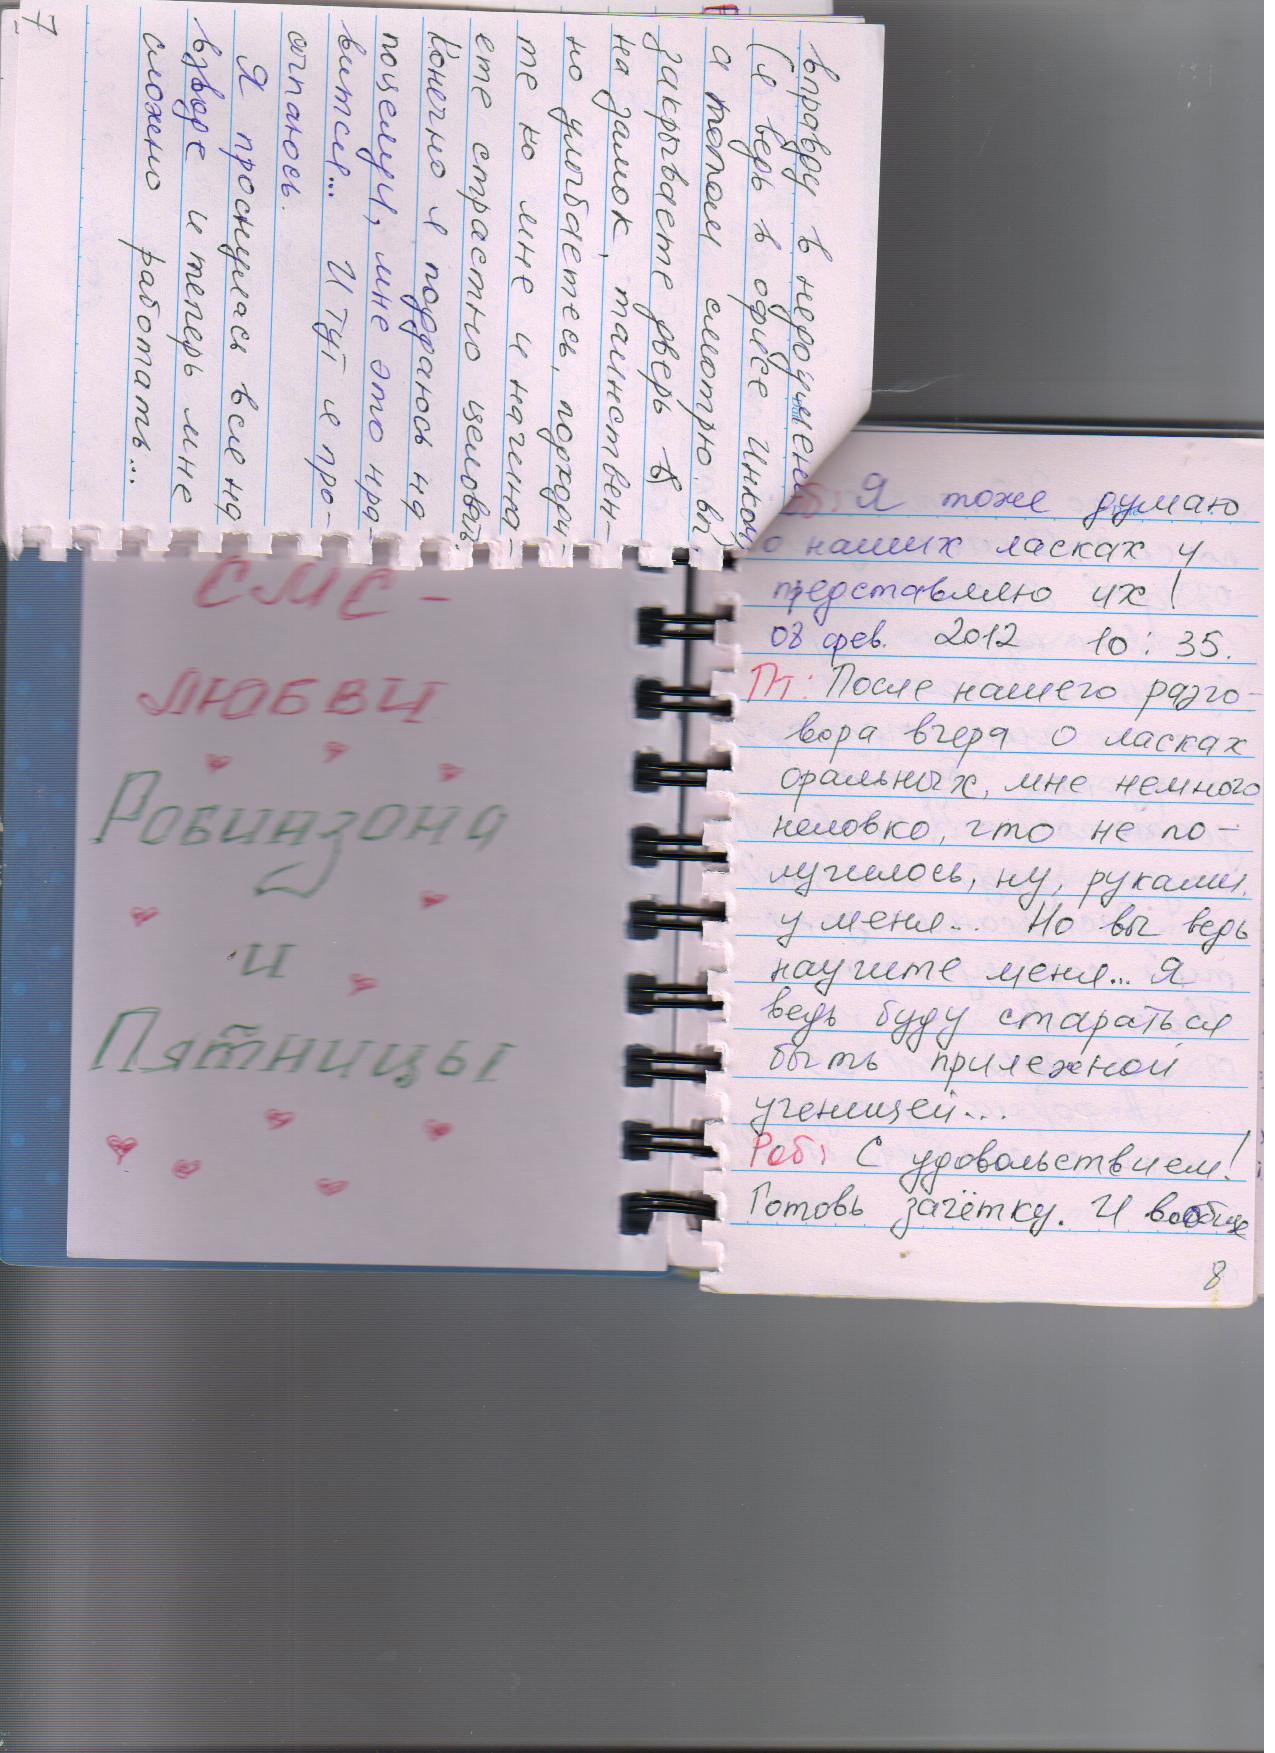 вправду в недоумении
(я ведь в офисе Инком)
а потом смотрю, вы
закрываете дверь
на замок, таинствен-
но улыбаетесь, подходи-
те ко мне и начина-
ете страстно целовать.
Конечно я поддаюсь на
поцелуи, мне это нра-
вится... И тут я про-
сыпаюсь.
Я проснулась вся на
взводе и теперь мне
сложно работать...
7
СМС -
ЛЮБВИ
Робинзона
и
Пятницы
Роб: Я тоже думаю
о наших ласках и
представляю их!
08 фев. 2012 10:35.
Пт: После нашего разго-
вора вчера о ласках
оральных, мне немного
неловко, что не по-
лучилось, ну, руками
у меня... Но вы ведь
научите меня... Я
ведь буду стараться
быть прилежной
ученицей...
Роб: С удовольствием!
Готовь зачётку. И вообще
8